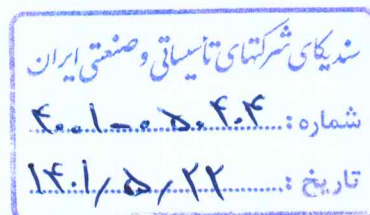 سندیکای شرکتهای تأسیساتی و صنعتی ایران
شماره : ۴۰۰۱-۰۵۰۴۰۴
تاریخ : ۱۴۰۱/۵/۲۲